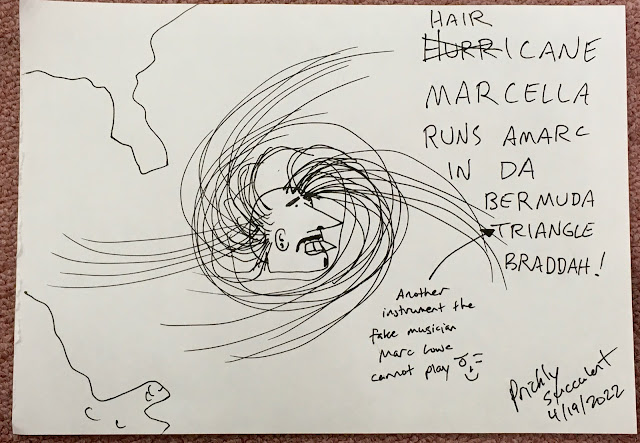 HAIR
HURRICANE
MARCELLA
RUNS AMARC
IN DA
BERMUDA
TRIANGLE
BRADDAH!
Another
instrument the
fake musician
Marc Lowe
cannot play
Prickly
Succulent
4/19/2022